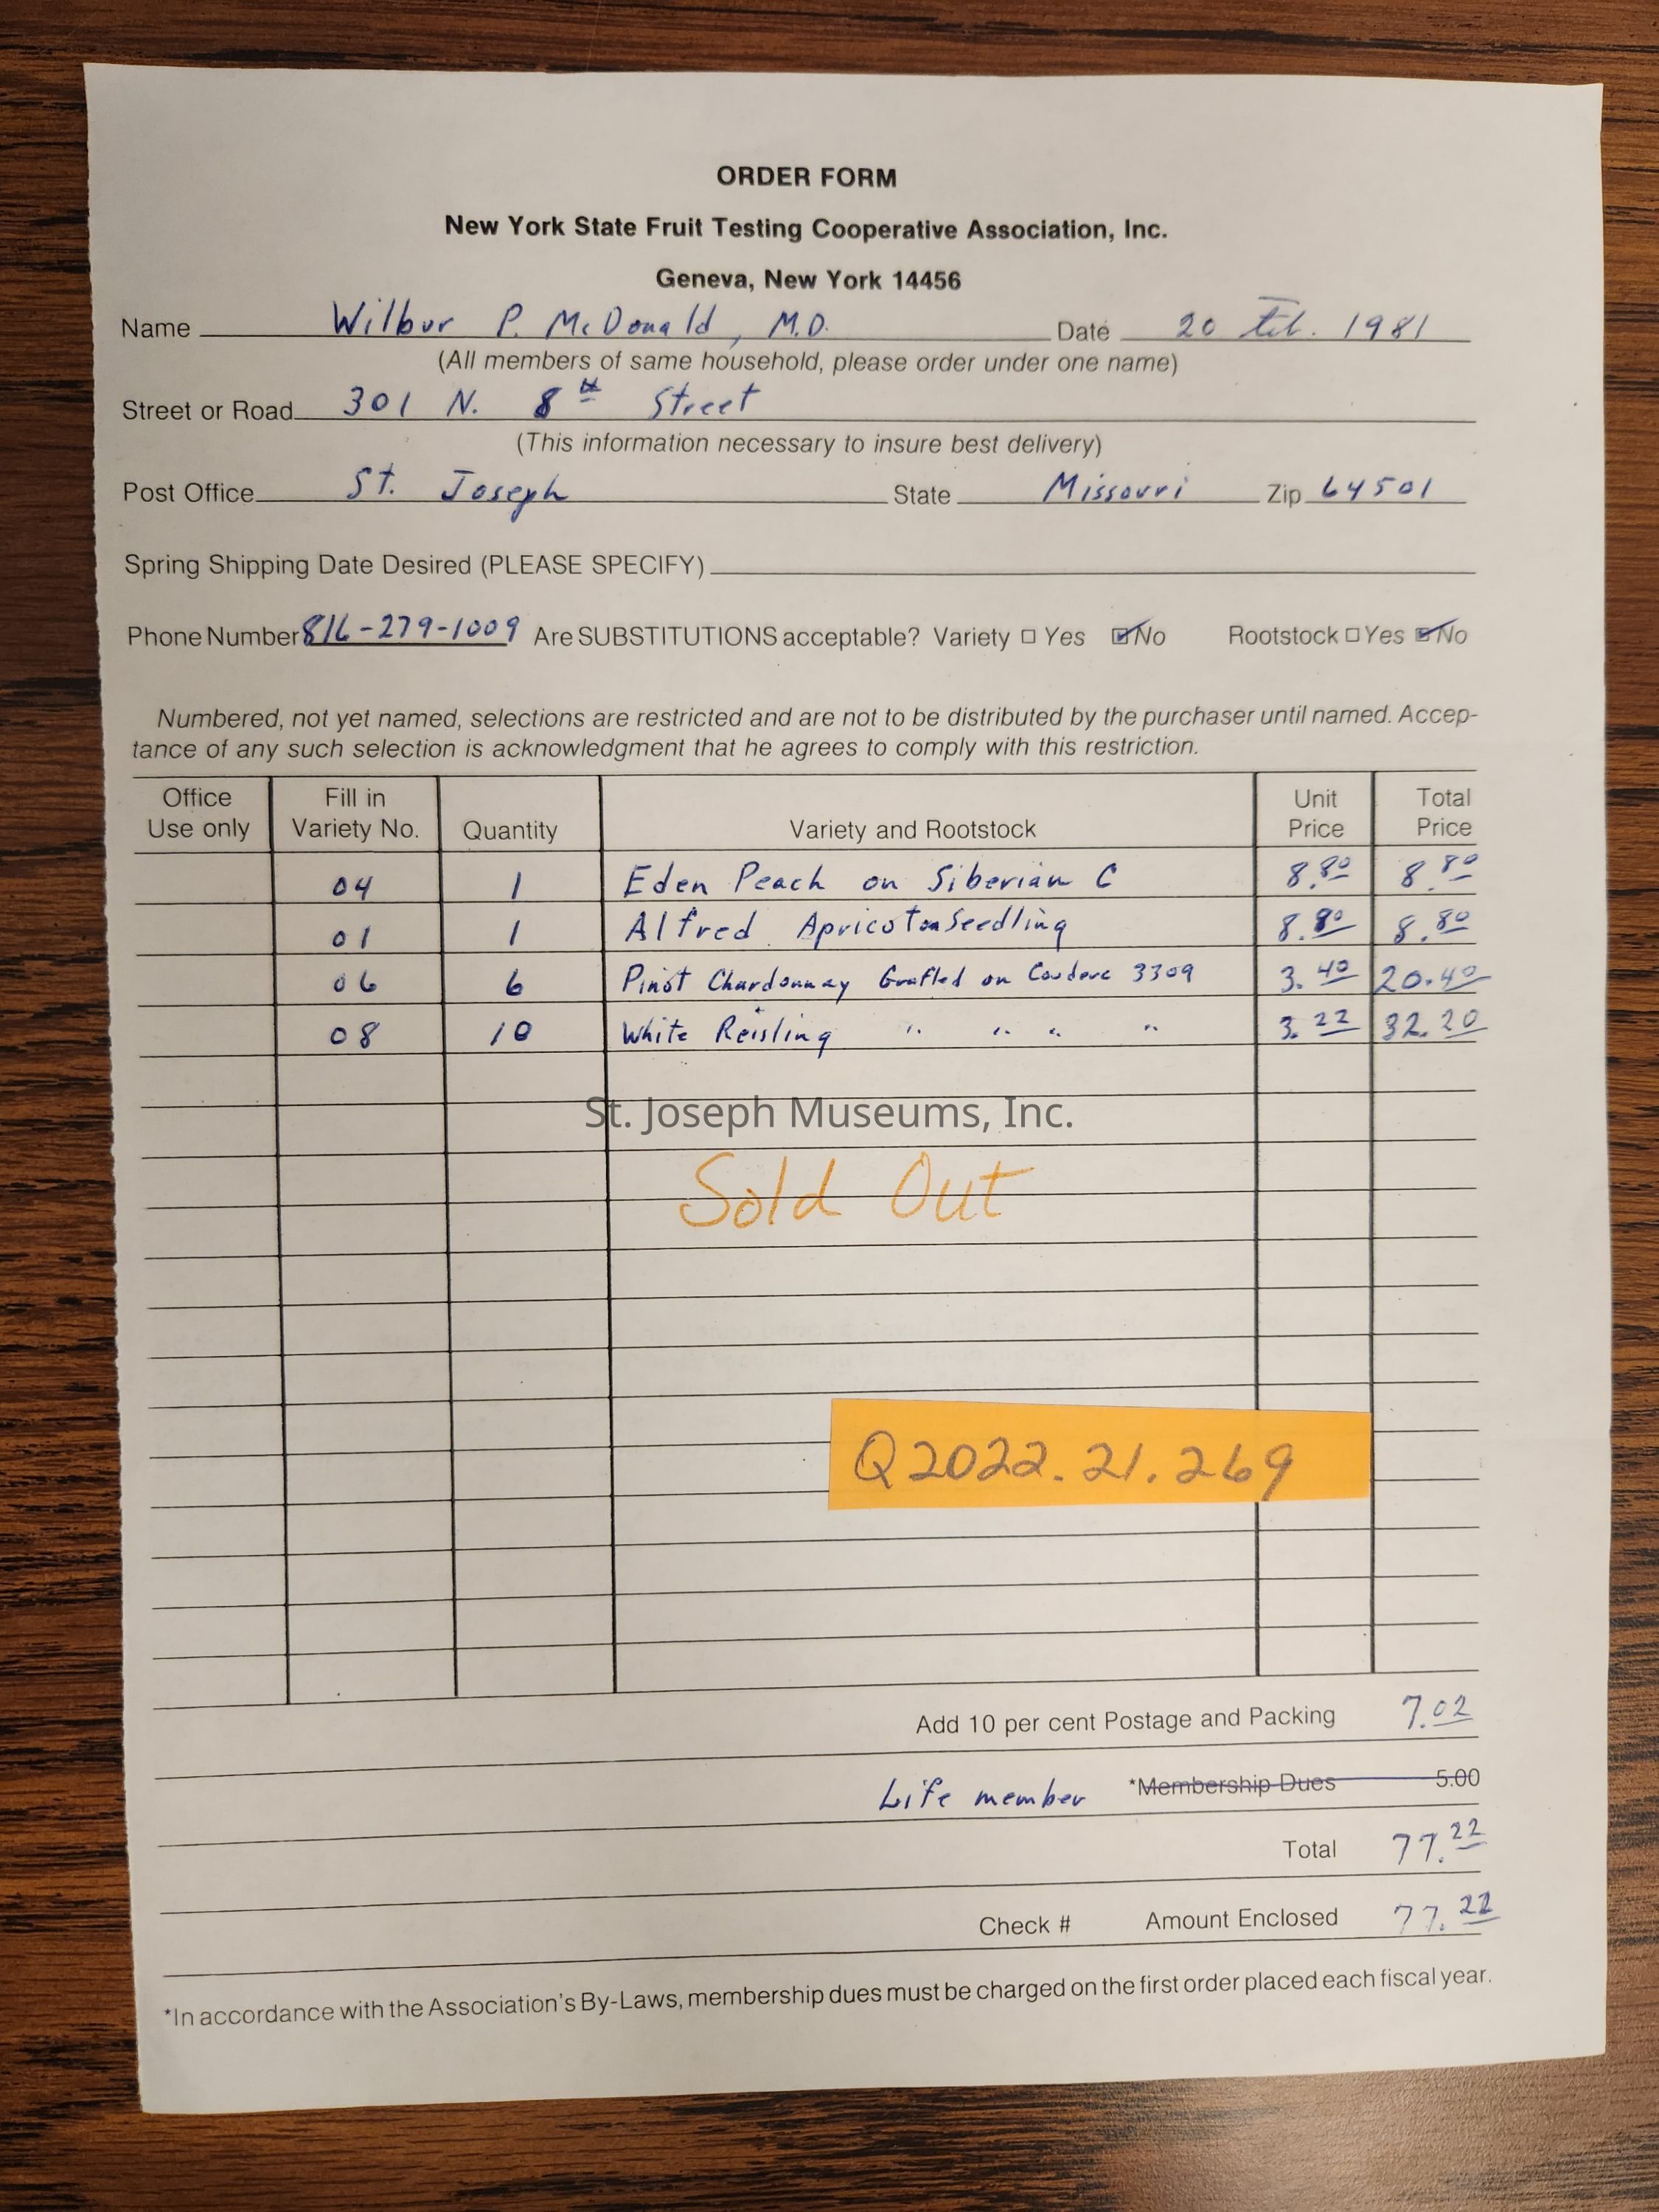 ORDER FORM
New York State Fruit Testing Cooperative Association, Inc.
Geneva, New York 14456
Name Wilbur P. McDonald, M.D. Date 20 Feb. 1981
(All members of same household, please order under one name)
Street or Road 301 N. 8th Street
(This information necessary to insure best delivery)
Post Office St. Joseph State Missouri Zip 64501
Spring Shipping Date Desired (PLEASE SPECIFY)
Phone Number 816-279-1009 Are SUBSTITUTIONS acceptable? Variety □ Yes ☑ No Rootstock □ Yes ☑ No
Numbered, not yet named, selections are restricted and are not to be distributed by the purchaser until named. Accep-
tance of any such selection is acknowledgment that he agrees to comply with this restriction.
Office Use only Fill in Variety No. Quantity Variety and Rootstock Unit Price Total Price
04 1 Eden Peach on Siberian C 8.80 8.80
01 1 Alfred Apricot on Seedling 8.80 8.80
06 6 Pinot Chardonnay Grafted on Couderc 3309 3.40 20.40
08 10 White Reisling " " " " 3.22 32.20
St. Joseph Museums, Inc.
Sold Out
Q2022.21.269
Add 10 per cent Postage and Packing 7.02
Life member *Membership Dues 5.00
Total 77.22
Check # Amount Enclosed 77.22
*In accordance with the Association's By-Laws, membership dues must be charged on the first order placed each fiscal year.